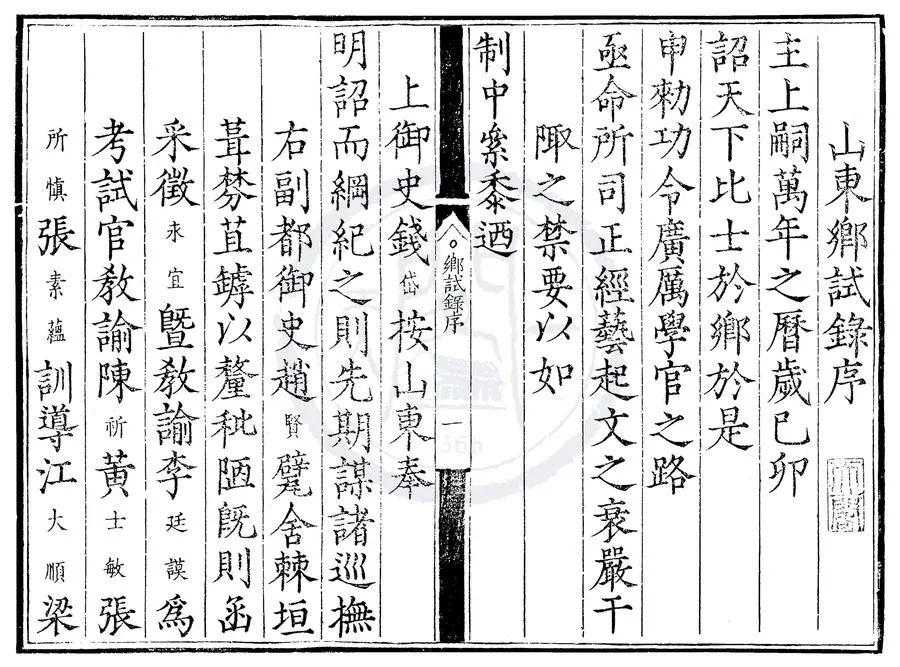 山東鄉試錄序
主上嗣萬年之曆歲己卯
詔天下比士於鄉於是
申勑功令廣厲學官之路
亟命所司正經藝起文之衰嚴干
陬之禁要以如
制中絫黍迺
鄉試錄序
一
上御史錢岱按山東奉
明詔而綱紀之則先期謀諸巡撫
右副都御史趙賢甓舍棘垣
葺棼苴罅以釐秕陋旣則函
采徵來宜曁敎諭李廷謨爲
考試官敎諭陳祈黃士敏張
所慎張素蘊訓導江大順梁